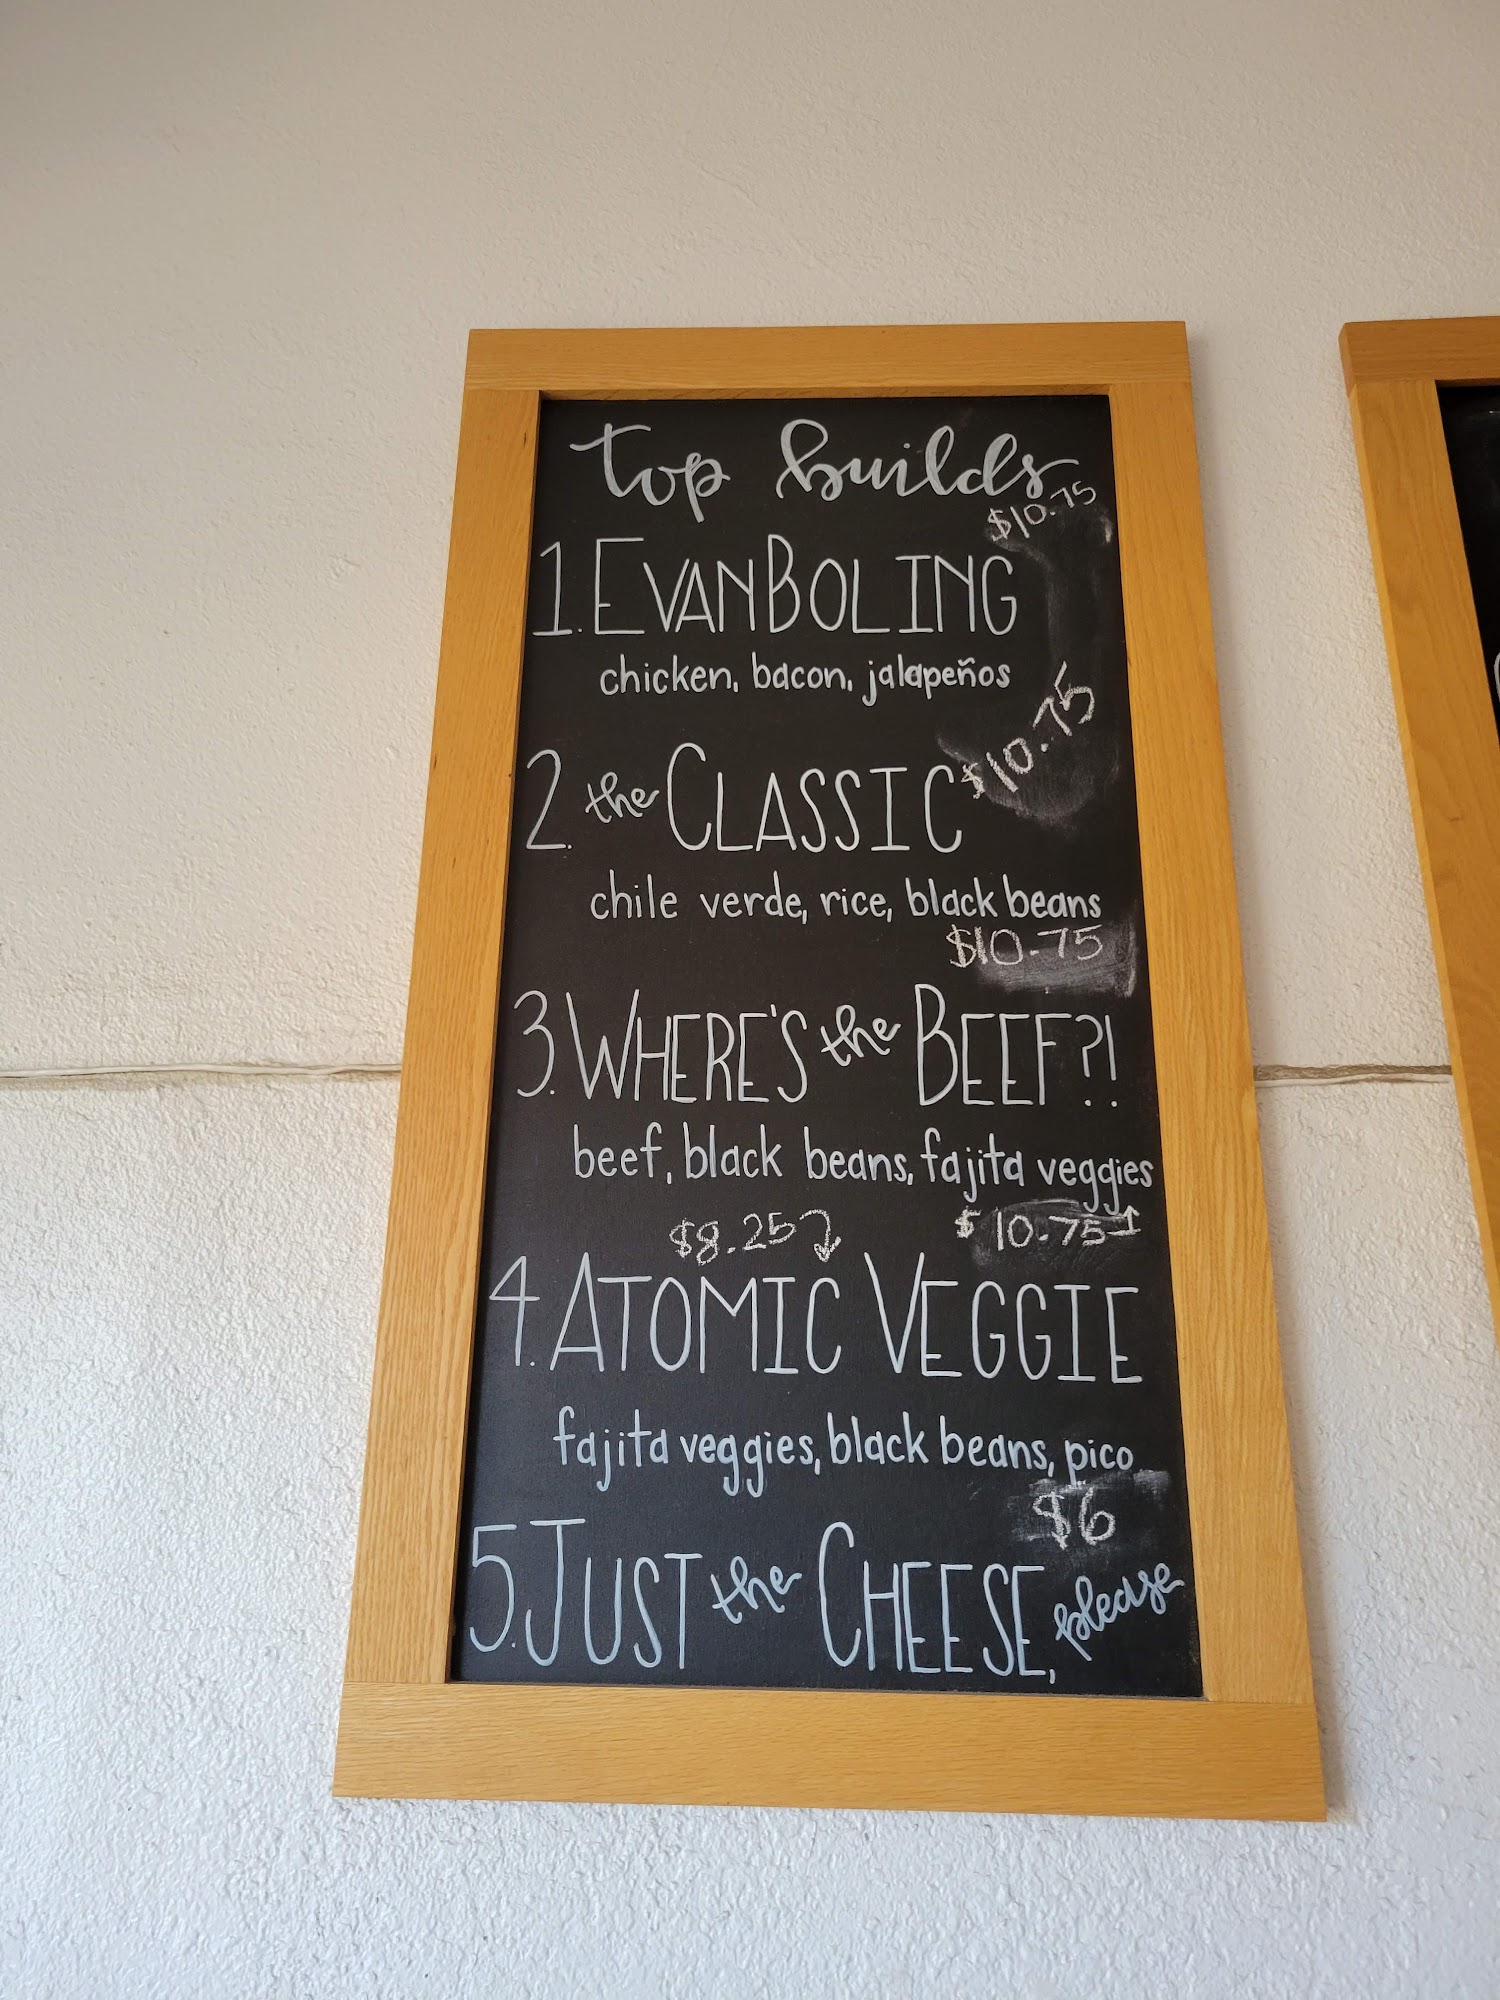 top builds
$10.75
1. EVANBOLING
chicken, bacon, jalapeños
$10.75
2. the CLASSIC
chile verde, rice, black beans
$10.75
3. WHERE'S the BEEF?!
beef, black beans, fajita veggies
$8.25 $10.75
4. ATOMIC VEGGIE
fajita veggies, black beans, pico
$6
5. JUST the CHEESE, please